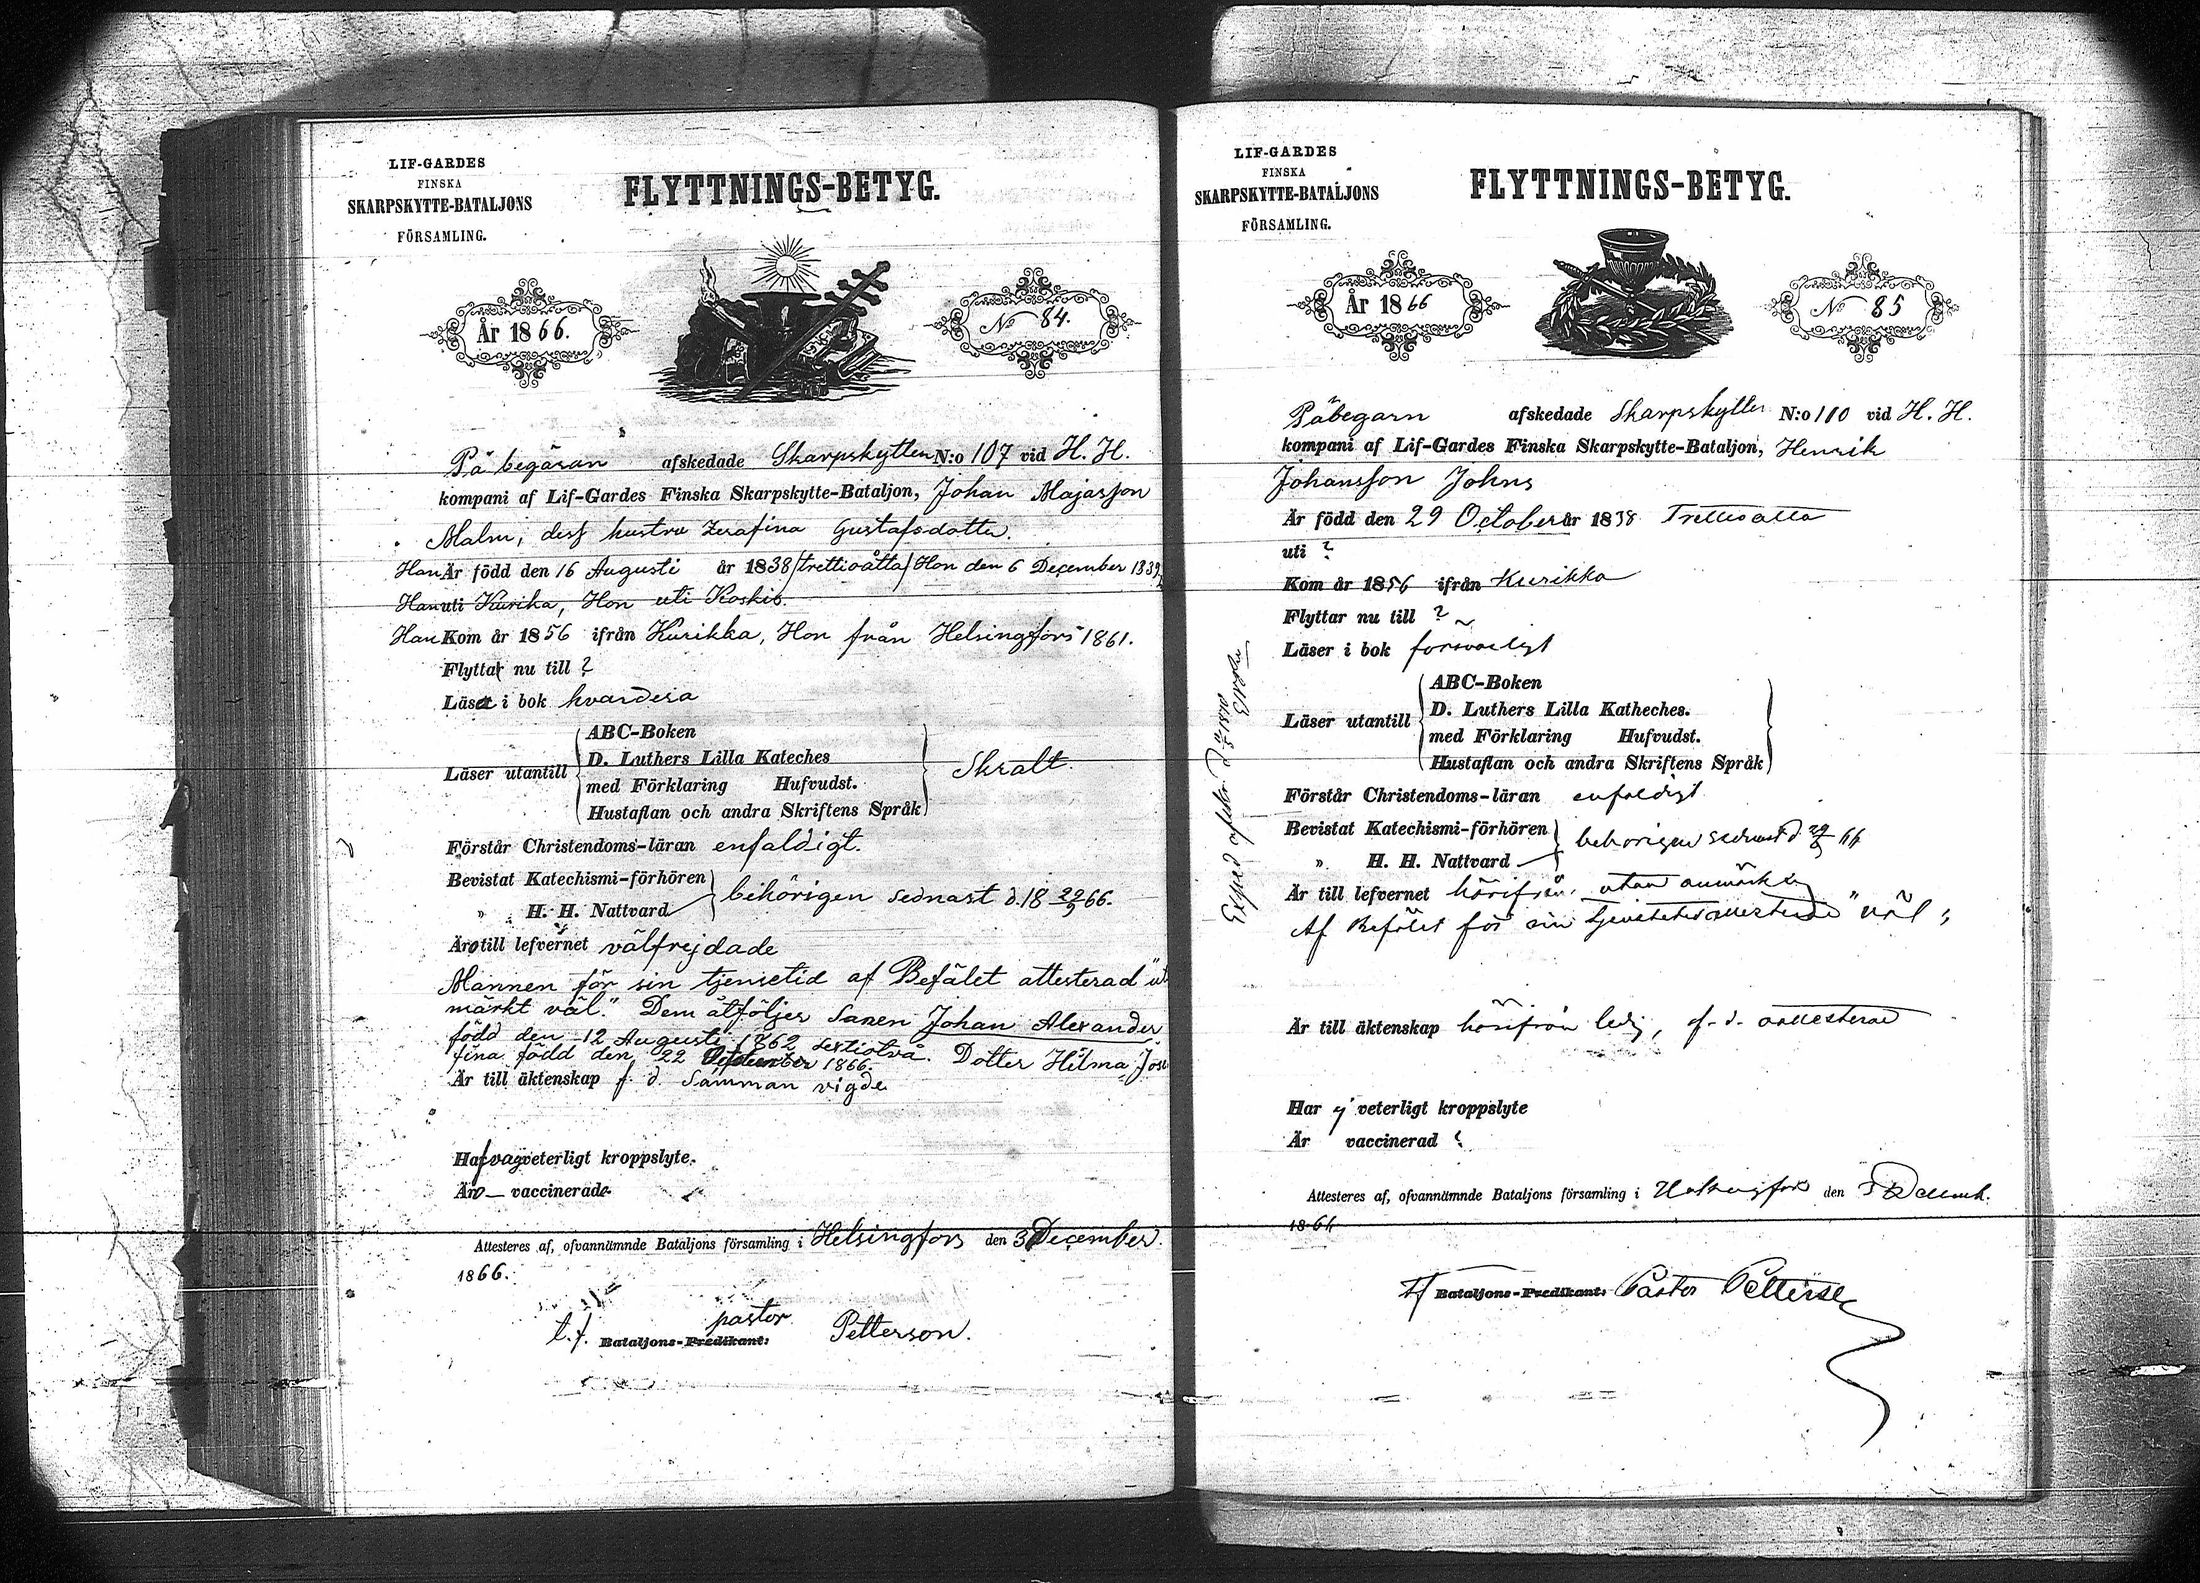 LIF-GARDES
FINSKA
SKARPSKYTTE-BATALJONS
FÖRSAMLING.
FLYTTNINGS-BETYG.
År 1866.
No 84.
På begäran afskedade Skarpskytten N:o 107 vid H. H.
kompani af Lif-Gardes Finska Skarpskytte-Bataljon, Johan Majasson
Malm, dess hustru Serafina Gustafsdotter.
Han Är född den 16 Augusti år 1838 /trettioåtta/ Hon den 6 December 1839
Han uti Kurika, Hon uti Koskis.
Han Kom år 1856 ifrån Kurikka, Hon från Helsingfors 1861.
Flytta nu till ?
Läsa i bok hvardera
Läser utantill
ABC-Boken
D. Luthers Lilla Kateches
med Förklaring Hufvudst.
Hustaflan och andra Skriftens Språk
Skralt
Förstår Christendoms-läran enfaldigt.
Bevistat Katechismi-förhören
" H. H. Nattvard
behörigen sednast d. 18 22/9 66.
Äro till lefvernet välfrejdade
Mannen för sin tjensetid af Befälet attesterad "ut
märkt väl." Dem åtföljer Sonen Johan Alexander
född den 12 Augusti 1862 sextiotvå. Dotter Hilma Jose
fina född den 22 September 1866.
Är till äktenskap f. d. Samman vigde
veterligt kroppslyte.
Äro — vaccinerade
Attesteres af, ofvannämnde Bataljons församling i Helsingfors den 3 December
1866.
t.f. Bataljons-Predikant: pastor Petterson.
LIF-GARDES
FINSKA
SKARPSKYTTE-BATALJONS
FÖRSAMLING.
FLYTTNINGS-BETYG.
År 1866
No 85
Påbegärn afskedade Skarpskytten N:o 110 vid H. H.
kompani af Lif-Gardes Finska Skarpskytte-Bataljon, Henrik
Johansson Johns
Är född den 29 October år 1838 Trettioåtta
uti ?
Kom år 1856 ifrån Kurikka
Flyttar nu till ?
Läser i bok försvarligt
Läser utantill
ABC-Boken
D. Luthers Lilla Katheches.
med Förklaring Hufvudst.
Hustaflan och andra Skriftens Språk
Förstår Christendoms-läran enfaldigt
Bevistat Katechismi-förhören
" H. H. Nattvard
behörigen sednast d.
Är till lefvernet härifrån utan anmärkng
Af Befälet för sin väl;
Är till äktenskap härifrån ledig, f. d.
Har ej veterligt kroppslyte
Är vaccinerad ?
Attesteres af, ofvannämnde Bataljons församling i Helsingfors den 3 Decemb.
1866
tf Bataljons-Predikant: Pastor Petterson